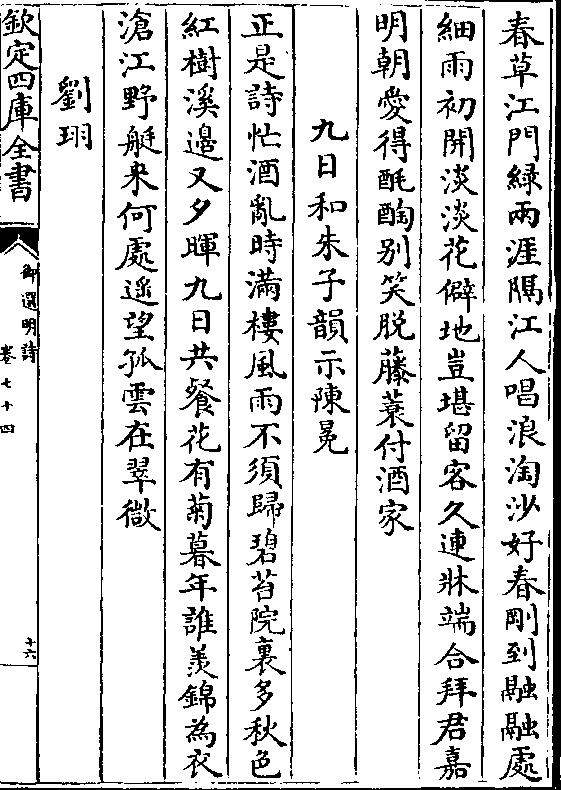 春草江門綠兩涯隔江人唱浪淘沙好春剛到融融處
細雨初開淡淡花僻地豈堪留客久連牀端合拜君嘉
明朝愛得酕醄別笑脫藤蓑付酒家
九日和朱子韻示陳冕
正是詩忙酒亂時滿樓風雨不須歸碧苔院裏多秋色
紅樹溪邊又夕暉九日共餐花有菊暮年誰羨錦為衣
滄江野艇來何處遥望孤雲在翠微
劉珝
欽定四庫全書
御選明詩
卷七十四
十六